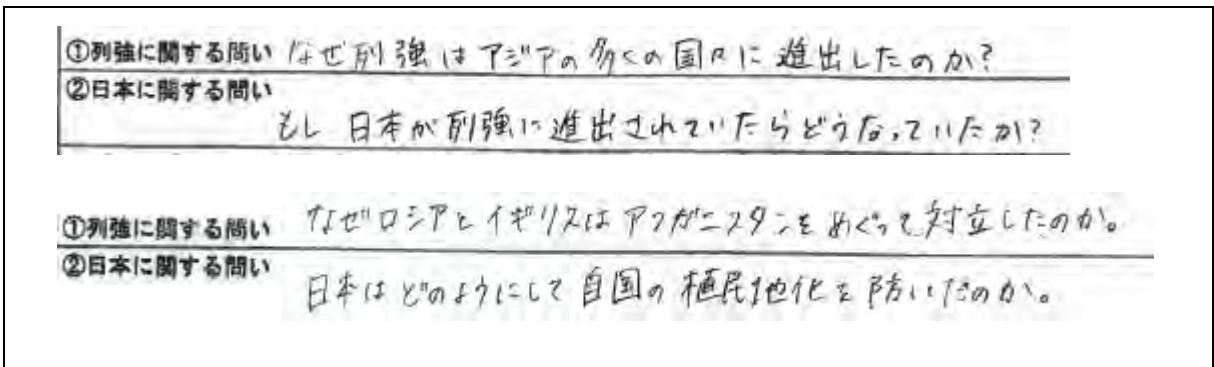 ①列強に関する問い なぜ列強はアジアの多くの国々に進出したのか?
②日本に関する問い
もし 日本が列強に進出されていたらどうなっていたか?
①列強に関する問い なぜロシアとイギリスはアフガニスタンをめぐって対立したのか。
②日本に関する問い
日本はどのようにして自国の植民地化を防いだのか。